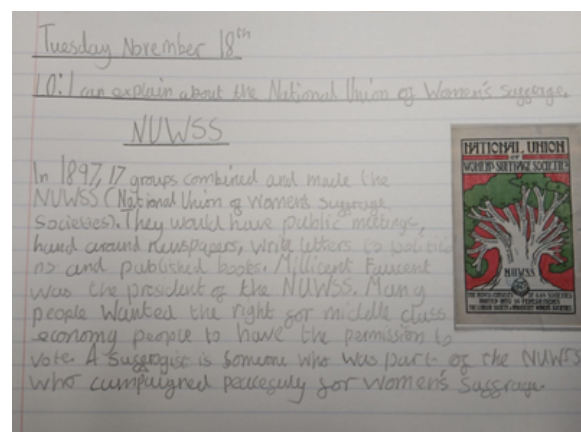 Tuesday November 18th
LO: I can explain about the National Union of Women's Suffrage.
NUWSS
In 1897, 17 groups combined and made the
NUWSS (National Union of Women's Suffrage
Societies). They would have public meetings,
hand around newspapers, write letters to politicia
ns and published books. Millicent Fawcent
was the president of the NUWSS. Many
people wanted the right for middle class
economy people to have the permission to
vote. A suffragist is someone who was part of the NUWSS
who campaigned peacefuly for women's suffrage.
NATIONAL UNION
OF
WOMEN'S SUFFRAGE SOCIETIES
NUWSS